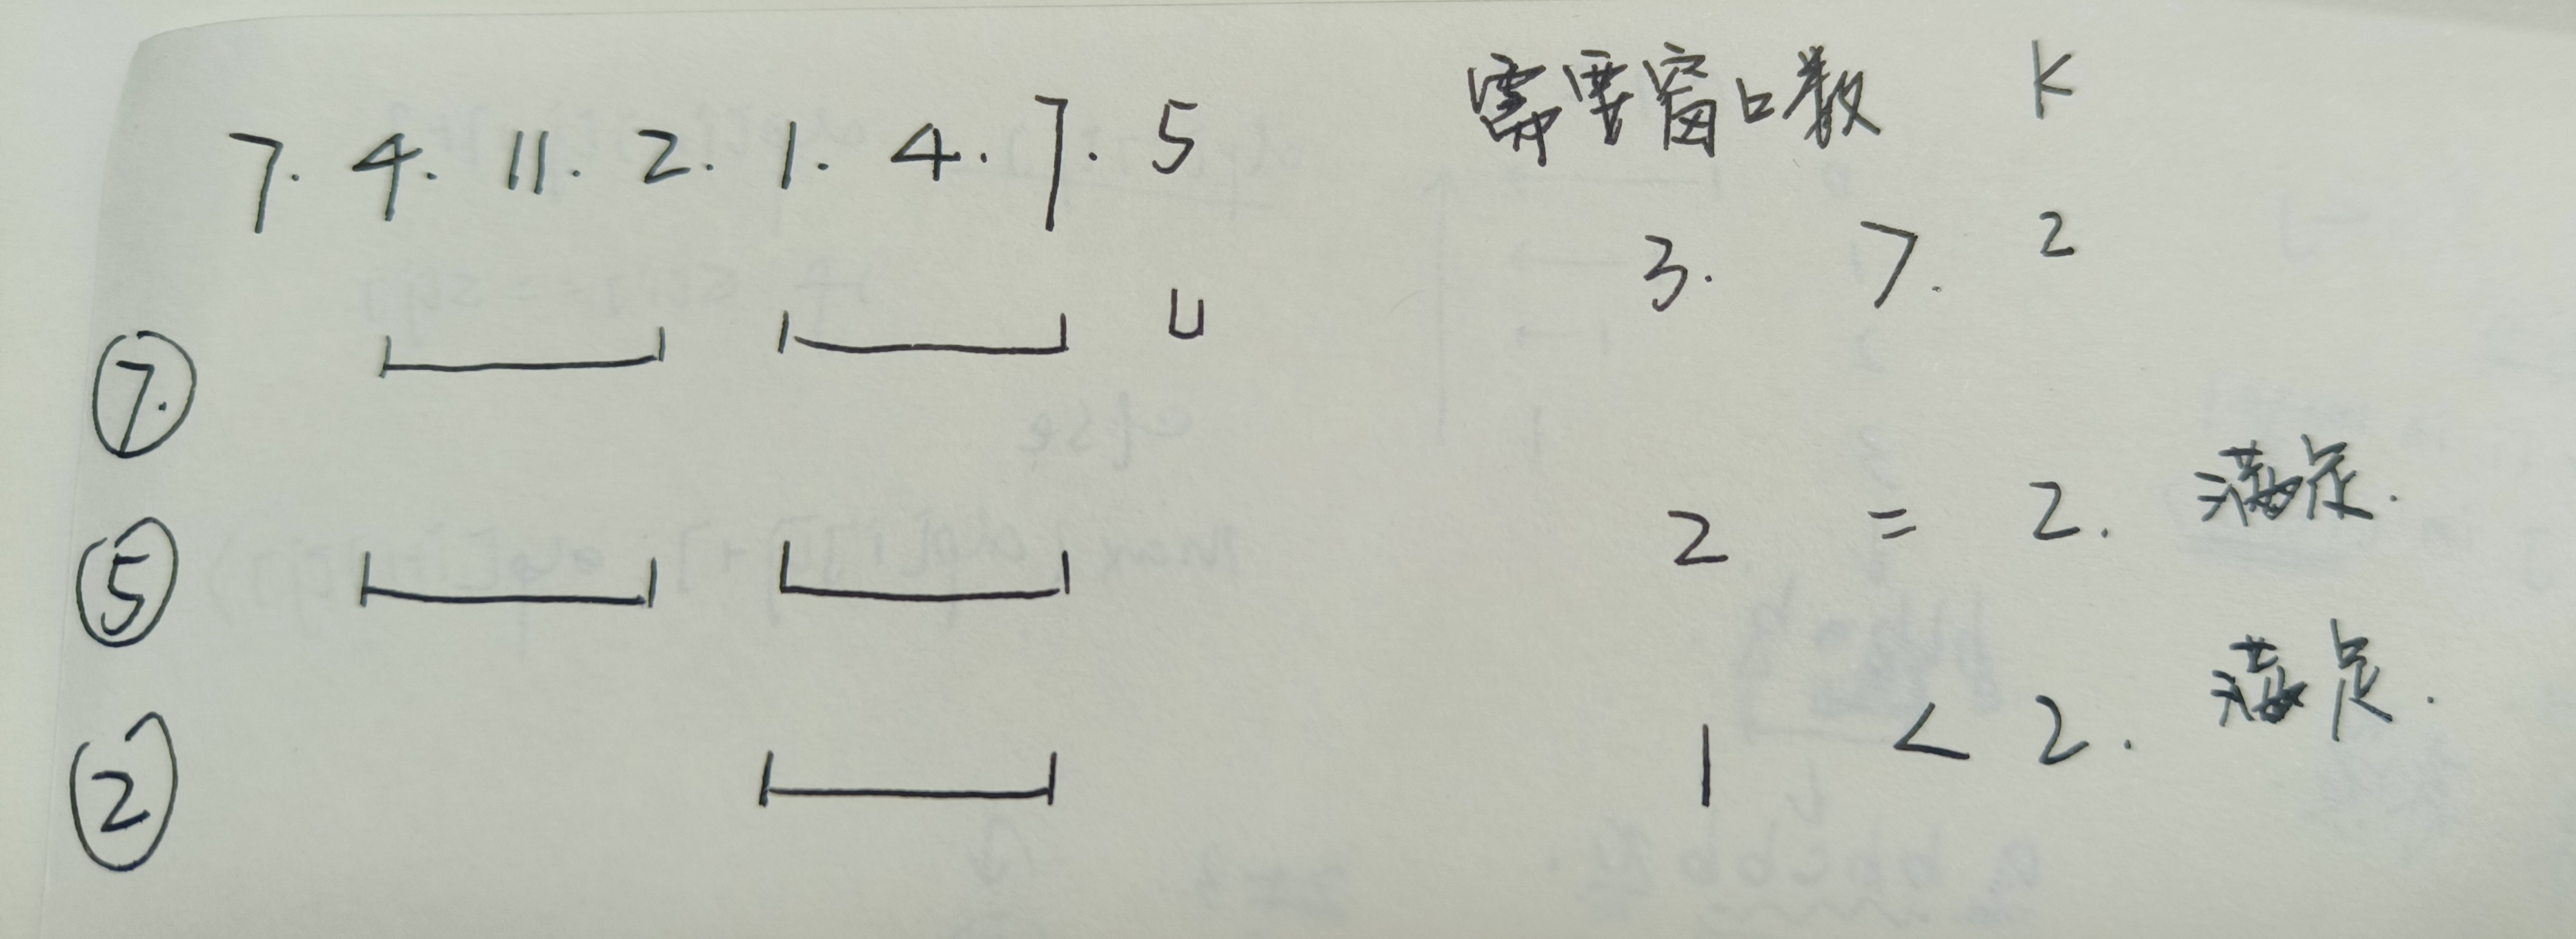 7. 4. 11. 2. 1. 4. 7. 5 需要窗口数 K
⑦ 3. > 2
⑤ 2 = 2. 满足.
② 1 < 2. 满足.